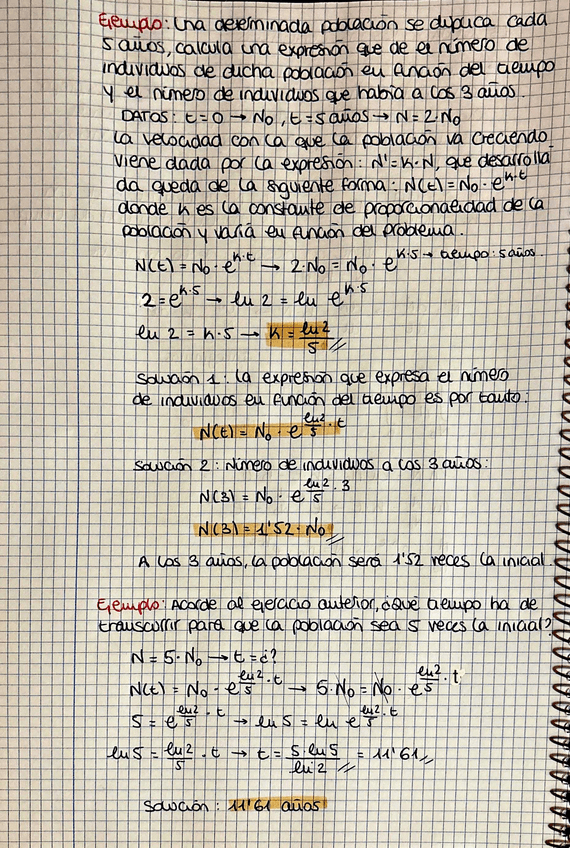 Ejemplo: Una determinada población se duplica cada
5 años, calcula una expresión que de el número de
individuos de dicha población en función del tiempo
y el número de individuos que habría a los 3 años.
DATOS: t=0 → N₀, t=5 años → N=2·N₀
La velocidad con la que la población va creciendo
viene dada por la expresión: N'=K·N, que desarrolla
da queda de la siguiente forma: N(t)=N₀·e^(K·t)
donde K es la constante de proporcionalidad de la
población y varía en función del problema.
N(t)=N₀·e^(K·t) → 2·N₀=N₀·e^(K·5) → tiempo: 5 años.
2=e^(K·5) → ln 2 = ln e^(K·5)
ln 2 = K·5 → K = ln2/5 //
Solución 1: La expresión que expresa el número
de individuos en función del tiempo es por tanto:
N(t)=N₀·e^(ln2/5·t)
Solución 2: Número de individuos a los 3 años:
N(3)=N₀·e^(ln2/5·3)
N(3)=1'52·N₀ //
A los 3 años, la población será 1'52 veces la inicial.
Ejemplo: Acorde al ejercicio anterior, ¿Qué tiempo ha de
transcurrir para que la población sea 5 veces la inicial?
N=5·N₀ → t=¿?
N(t)=N₀·e^(ln2/5·t) → 5·N₀=N₀·e^(ln2/5·t)
5=e^(ln2/5·t) → ln 5 = ln e^(ln2/5·t)
ln5 = ln2/5·t → t = 5·ln5/ln2 // = 11'61 //
Solución: 11'61 años